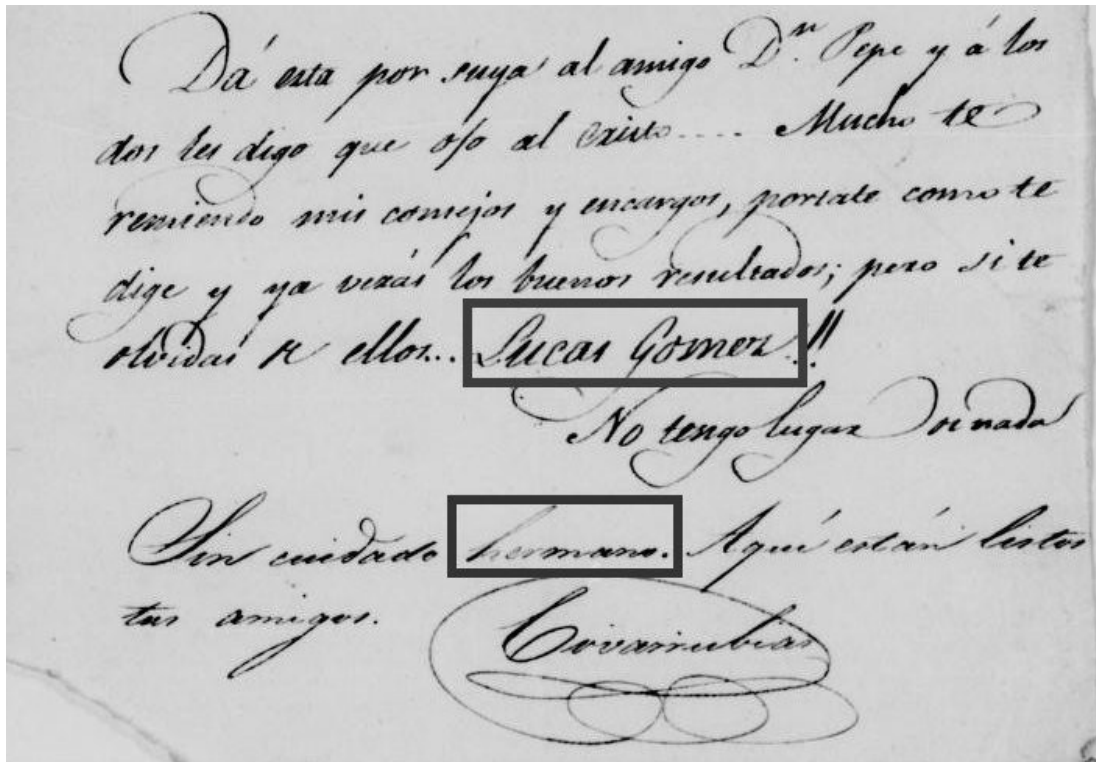 Dá esta por suya al amigo D.n Pepe y á los
dos les digo que ojo al Cristo.... Mucho te
remiendo mis consejos y encargos, portate como te
dige y ya verás los buenos resultados; pero si te
olvidas de ellos... Lucas Gomez!!
No tengo lugar de nada
Sin cuidado hermano. Aquí están listos
tus amigos.
Covarrubias